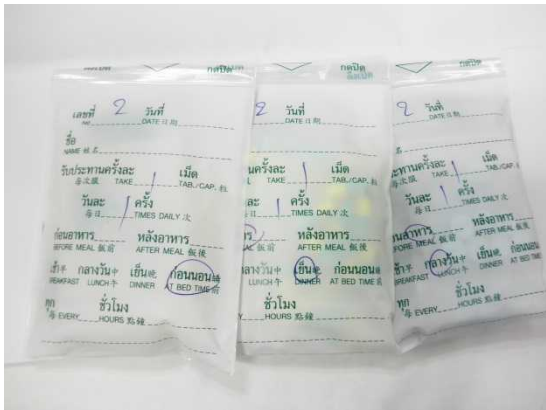 กดปิด
เลขที่ 2 วันที่
NO. DATE 日期
ชื่อ
NAME 姓名
รับประทานครั้งละ 1 เม็ด
每次服 TAKE TAB./CAP. 粒
วันละ 1 ครั้ง
每日 TIMES DAILY 次
ก่อนอาหาร หลังอาหาร
BEFORE MEAL 飯前 AFTER MEAL 飯後
กลางวัน中 เย็น晚 ก่อนนอน
BREAKFAST LUNCH午 DINNER AT BED TIME
ทุก ชั่วโมง
每 EVERY HOURS 點鐘
กดปิด
2 วันที่
DATE 日期
ครั้งละ 1 เม็ด
TAKE TAB./CAP. 粒
1 ครั้ง
TIMES DAILY 次
หลังอาหาร
飯前 AFTER MEAL 飯後
กลางวัน中 เย็น晚 ก่อนนอน
LUNCH午 DINNER AT BED TIME
ชั่วโมง
EVERY HOURS 點鐘
กดปิด
2 วันที่
DATE 日期
ประทานครั้งละ 1 เม็ด
每次服 TAKE TAB./CAP. 粒
วันละ 1 ครั้ง
每日 TIMES DAILY 次
หลังอาหาร
BEFORE MEAL 飯前 AFTER MEAL 飯後
กลางวัน中 เย็น晚 ก่อนนอน
BREAKFAST LUNCH午 DINNER AT BED TIME
ทุก ชั่วโมง
每 EVERY HOURS 點鐘